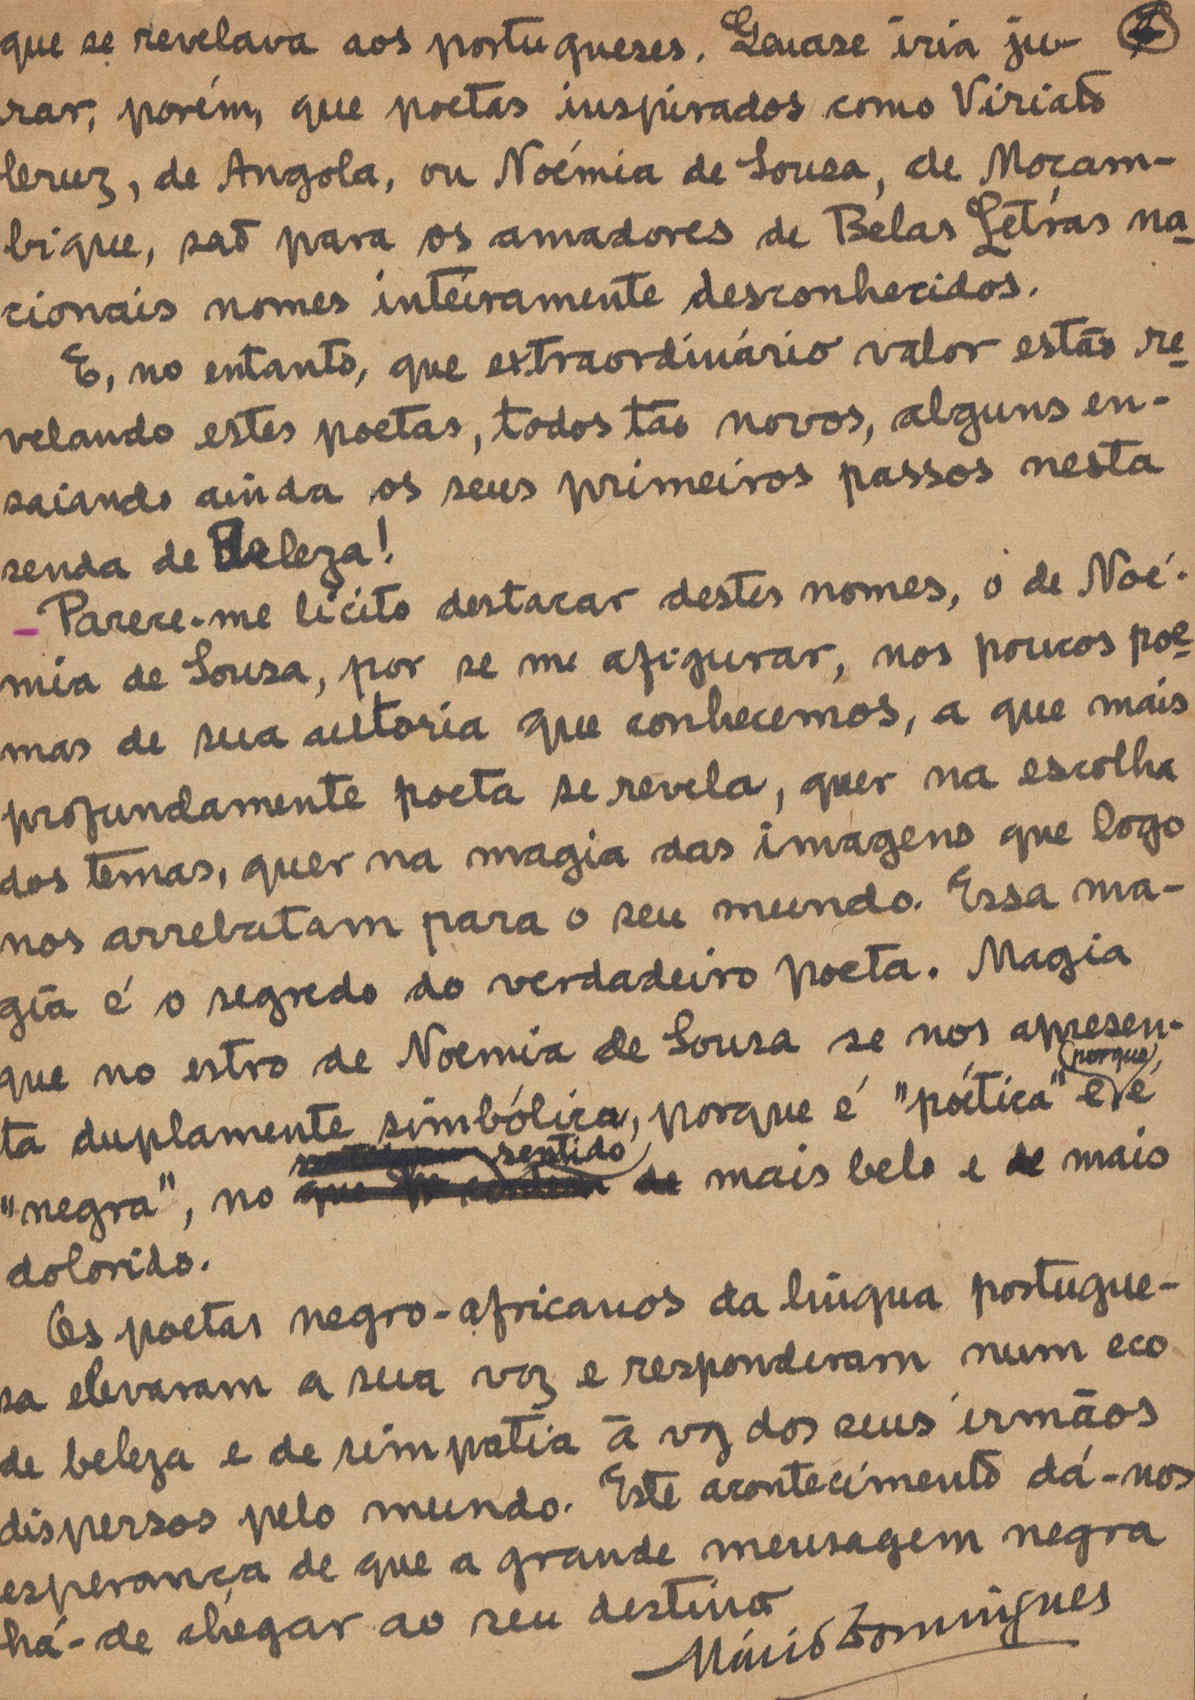 que se revelava aos portugueses. Quase iria ju-
rar, porém, que poetas inspirados como Viriato
Cruz, de Angola, ou Noémia de Sousa, de Moçam-
bique, são para os amadores de Belas Letras na-
cionais nomes inteiramente desconhecidos.
E, no entanto, que extraordinário valor estão re-
velando estes poetas, todos tão novos, alguns en-
saiando ainda os seus primeiros passos nesta
senda de Beleza!
- Parece-me lícito destacar destes nomes, o de Noé-
mia de Sousa, por se me afigurar, nos poucos poe-
mas de sua autoria que conhecemos, a que mais
profundamente poeta se revela, quer na escolha
dos temas, quer na magia das imagens que logo
nos arrebatam para o seu mundo. Essa ma-
gia é o segredo do verdadeiro poeta. Magia
que no estro de Noemia de Sousa se nos apresen-
ta duplamente simbólica, porque é "poética" e porque é
"negra", no sentido de mais belo e de mais
dolorido.
Os poetas negro-africanos da língua portugue-
sa elevaram a sua voz e responderam num eco
de beleza e de simpatia à voz dos seus irmãos
dispersos pelo mundo. Este acontecimento dá-nos
esperança de que a grande mensagem negra
há-de chegar ao seu destino
Mário Domingues